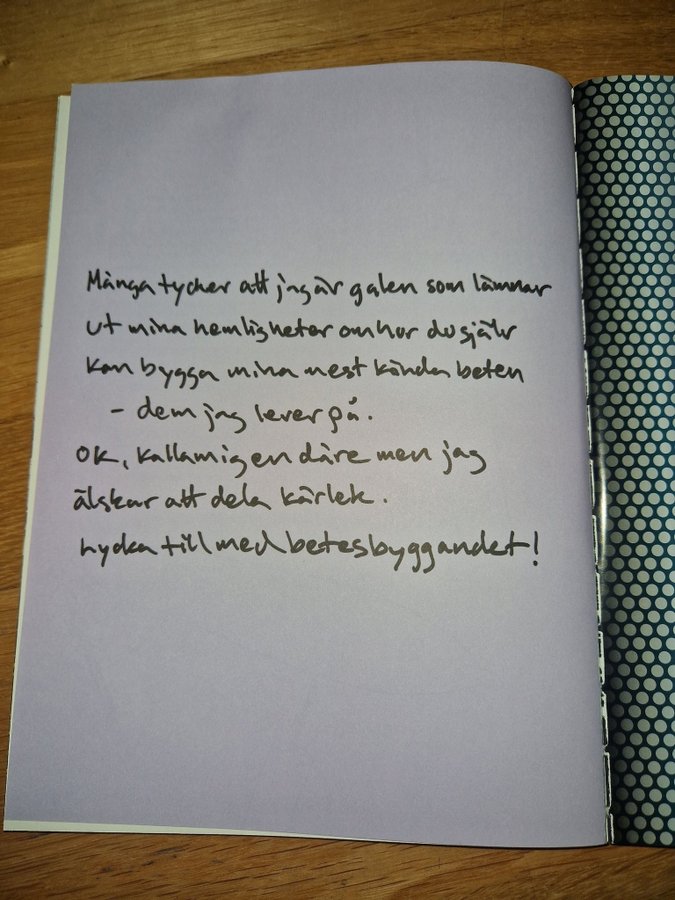 Många tycker att jag är galen som lämnar
ut mina hemligheter om hur du själv
kan bygga mina mest kända beten
- dem jag lever på.
OK, kalla mig en dåre men jag
älskar att dela kärlek.
Lycka till med betesbyggandet!